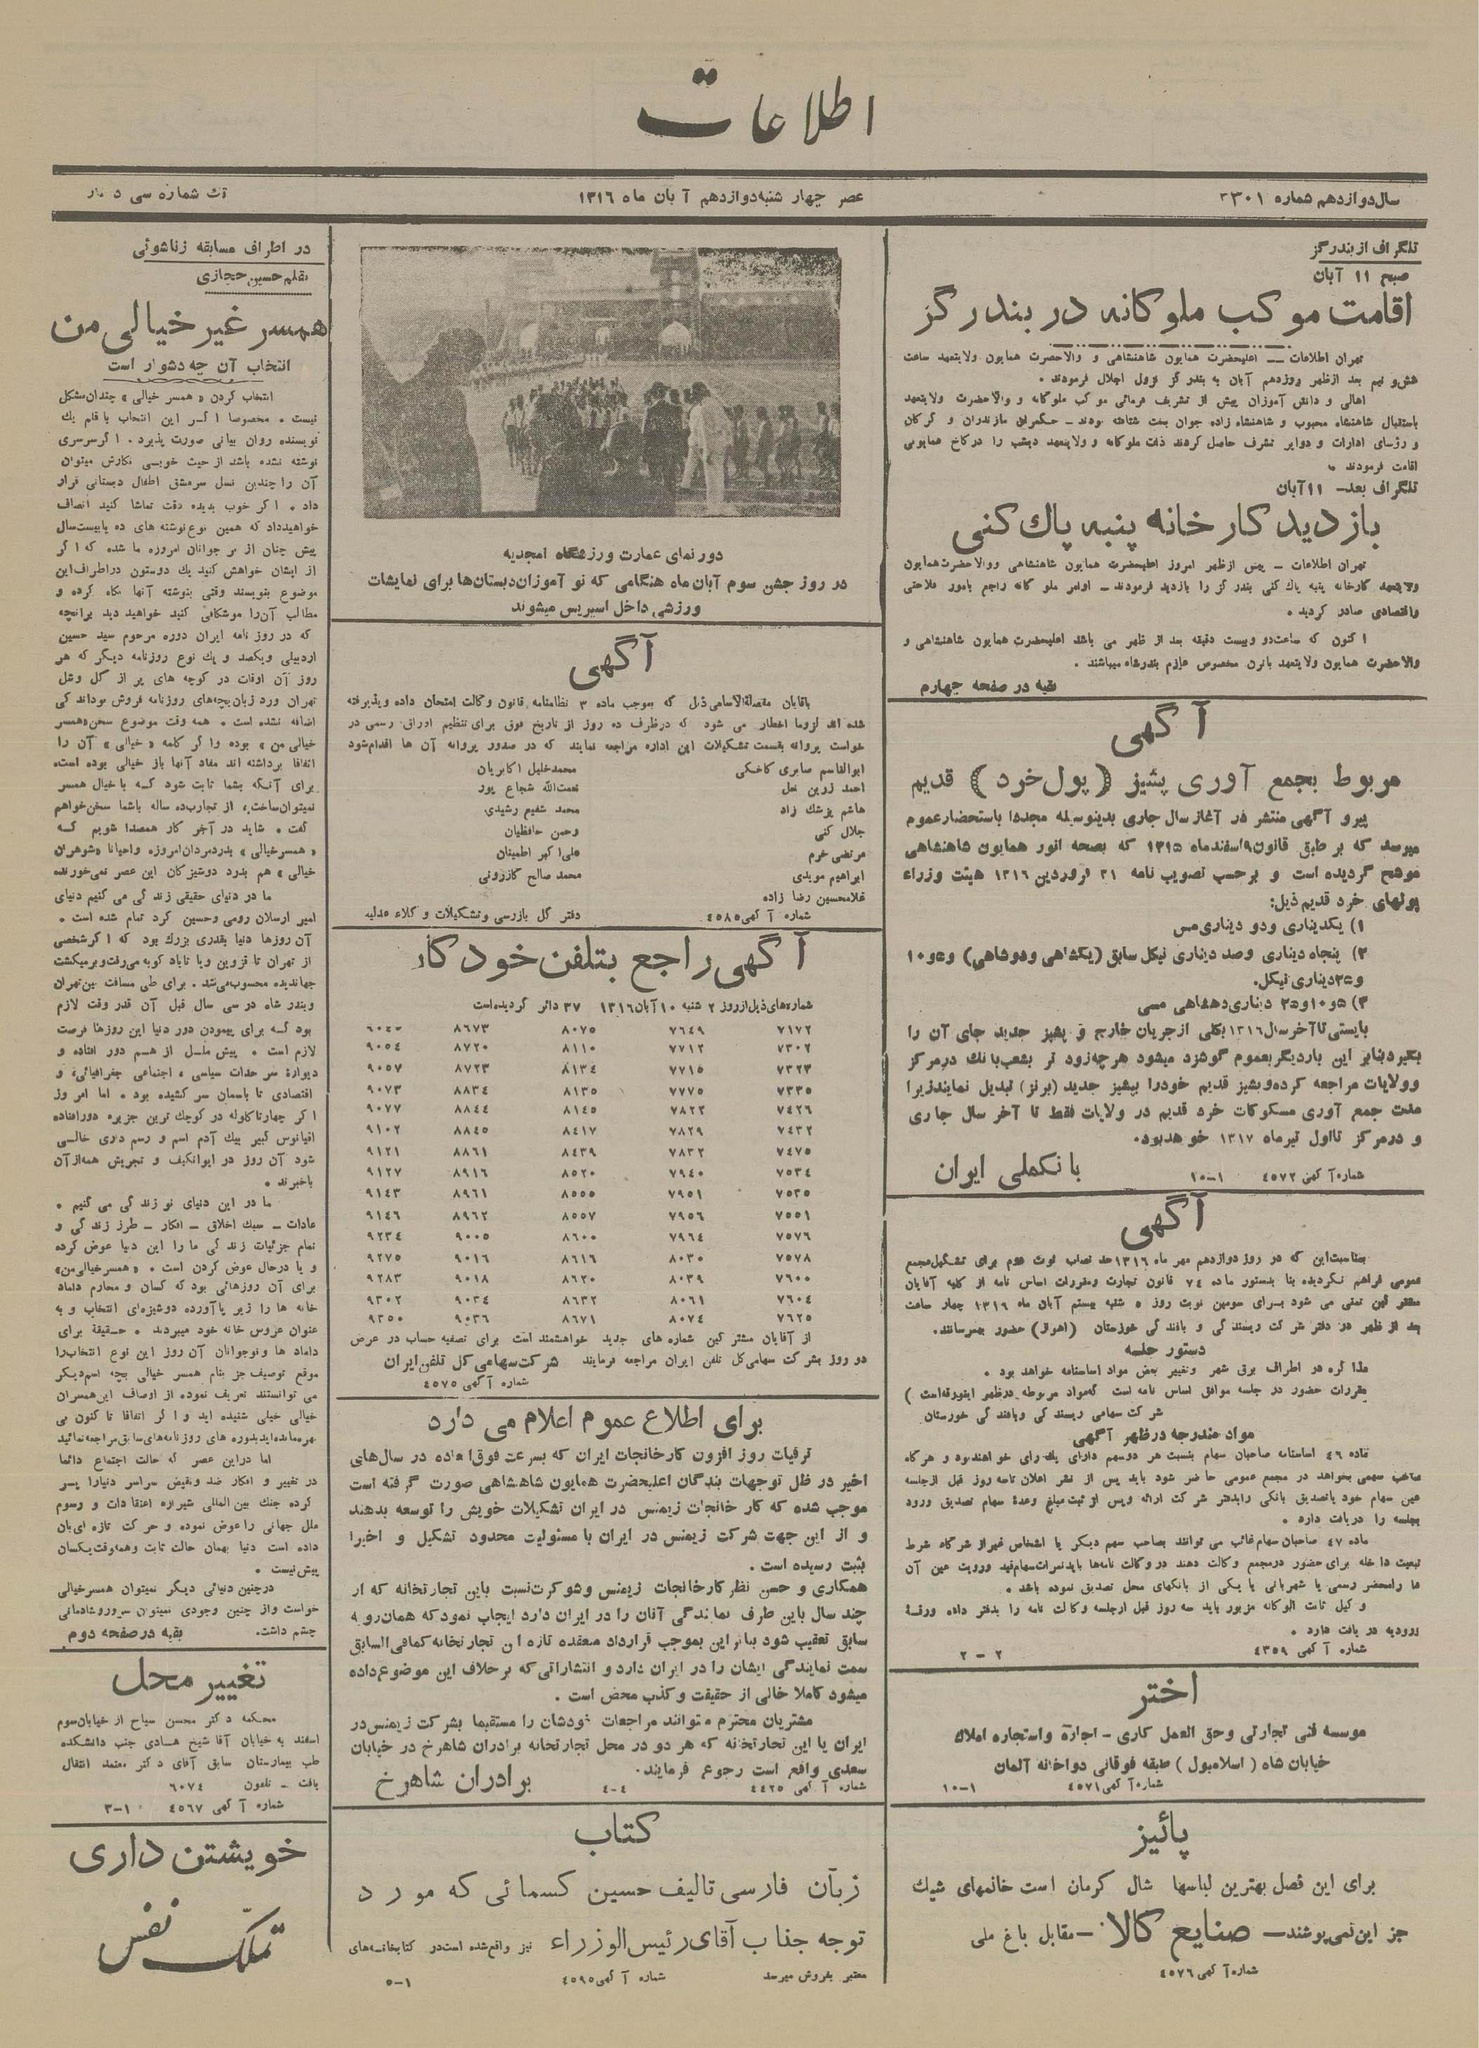 اطلاعات
سال دوازدهم شماره ۳۳۰۱
عصر چهار شنبه دوازدهم آبان ماه ۱۳۱۶
تك شماره سی دینار
تلگراف از بندرگز
صبح ۱۱ آبان
اقامت موکب ملوکانه در بندر گز
تهران اطلاعات ــ اعلیحضرت همایون شاهنشاهی و والاحضرت همایون ولایتعهد ساعت
شش و نیم بعد از ظهر روز دهم آبان به بندر گز نزول اجلال فرمودند .
اهالی و دانش آموزان پیش از تشریف فرمائی موکب ملوکانه و والاحضرت ولایتعهد
باستقبال شاهنشاه محبوب و شاهنشاه زاده جوان بخت شتافته بودند ــ حکمرانی مازندران و گرگان
و رؤسای ادارات و دوایر تشرف حاصل کردند ذات ملوکانه و ولایتعهد دیشب را در کاخ همایونی
اقامت فرمودند .
تلگراف بعد ــ ۱۱ آبان
بازدید کارخانه پنبه پاك کنی
تهران اطلاعات ــ پیش از ظهر امروز اعلیحضرت همایون شاهنشاهی و والاحضرت همایون
ولایتعهد کارخانه پنبه پاك کنی بندر گز را بازدید فرمودند ــ اوامر ملوکانه راجع بامور فلاحتی
واقتصادی صادر گردید .
اکنون که ساعت دو و بیست دقیقه بعد از ظهر می باشد اعلیحضرت همایون شاهنشاهی و
والاحضرت همایون ولایتعهد باترن مخصوص عازم بندرشاه میباشند .
بقیه در صفحه چهارم
آگهی
مربوط بجمع آوری پشیز (پول خرد) قدیم
پیرو آگهی منتشر در آغاز سال جاری بدینوسیله مجددا باستحضار عموم
میرسد که بر طبق قانون ۹ اسفند ماه ۱۳۱۵ که بصحه انور همایون شاهنشاهی
موشح گردیده است و بر حسب تصویب نامه ۲۱ فروردین ۱۳۱۶ هیئت وزراء
پولهای خرد قدیم ذیل:
۱) یکدیناری و دو دیناری مس
۲) پنجاه دیناری و صد دیناری نیکل سابق (یکشاهی و دوشاهی) و ۵ و ۱۰
و ۲۵ دیناری نیکل.
۳) ۵ و ۱۰ و ۲۵ دیناری دهشاهی مسی
بایستی تا آخر سال ۱۳۱۶ بکلی از جریان خارج و پشیز جدید جای آن را
بگیرد بنابر این بار دیگر بعموم گوشزد میشود هر چه زود تر بشعب بانك در مرکز
و ولایات مراجعه کرده و پشیز قدیم خود را بپشیز جدید (برنز) تبدیل نمایند زیرا
مدت جمع آوری مسکوکات خرد قدیم در ولایات فقط تا آخر سال جاری
و در مرکز تا اول تیر ماه ۱۳۱۷ خواهد بود.
شماره آگهی ۴۵۷۲
۱ــ۱۰
بانک ملی ایران
آگهی
بمناسبت این که در روز دوازدهم مهر ماه ۱۳۱۶ حد نصاب نوبت دوم برای تشکیل مجمع
عمومی فراهم نگردیده بنا بدستور ماده ۷۴ قانون تجارت و مقررات اساس نامه از کلیه آقایان
مشترکین تمنی می شود برای سومین نوبت روز ۵ شنبه بیستم آبان ماه ۱۳۱۶ چهار ساعت
بعد از ظهر در دفتر شرکت ریسندگی و بافندگی خوزستان (اهواز) حضور بهمرسانند.
دستور جلسه
مذاکره در اطراف برق شهر و تغییر بعض مواد اساسنامه خواهد بود .
مقررات حضور در جلسه موافق اساس نامه است که مواد مربوطه در ظهر اینورقه است )
شرکت سهامی ریسندگی و بافندگی خوزستان
مواد مندرجه در ظهر آگهی
ماده ۴۶ اساسنامه صاحبان سهام بنسبت هر دو سهم دارای یك رای خواهند بود و هر گاه
صاحب سهمی بخواهد در مجمع عمومی حاضر شود باید پس از نشر اعلان تا سه روز قبل از جلسه
عین سهام خود یا تصدیق بانکی را بدفتر شرکت ارائه و پس از ثبت مبلغ و عدۀ سهام تصدیق ورود
بجلسه را دریافت دارد .
ماده ۴۷ صاحبان سهام غائب می توانند بصاحب سهم دیگر یا اشخاص غیر از شرکاء شرط
تبعیت داخله برای حضور در مجمع وکالت دهند در وکالت نامه ها باید نمرات سهام قید و رویت عین آن
ها را محضر رسمی یا شهربانی یا یکی از بانکهای محل تصدیق نموده باشد .
وکیل ثابت الوکاله مزبور باید سه روز قبل از جلسه وکالت نامه را بدفتر داده ورقۀ
ورودیه دریافت دارد .
شماره آگهی ۴۳۵۹
۲ــ۲
اختر
موسسه فنی تجارتی و حق العمل کاری ــ اجاره و استجاره املاك
خیابان شاه ( اسلامبول ) طبقه فوقانی دواخانه آلمان
شماره آگهی ۴۵۷۱
۱ــ۱۰
پائیز
برای این فصل بهترین لباسها شال کرمان است خانمهای شیك
جز این نمی پوشند ــ صنایع کالا ــ مقابل باغ ملی
شماره آگهی ۴۵۷۶
دورنمای عمارت ورزشگاه امجدیه
در روز جشن سوم آبان ماه هنگامی که نو آموزان دبستان‌ها برای نمایشات
ورزشی داخل اسپریس میشوند
آگهی
باقایان مفصلة الاسامی ذیل که بموجب ماده ۳ نظامنامه قانون وکالت امتحان داده و پذیرفته
شده اند لزوما اخطار می شود که در ظرف ده روز از تاریخ فوق برای تنظیم اوراق رسمی در
خواست پروانه بقسمت تشکیلات این اداره مراجعه نمایند که در صدور پروانه آن ها اقدام شود
ابوالقاسم صابری کاخکی محمد خلیل اکابریان
احمد زرین نعل نعمت الله شجاع پور
هاشم پزشك زاد محمد شفیع رشیدی
جلال کنی رحمن حافظیان
مرتضی خرم علی اکبر اطمینان
ابراهیم مویدی محمد صالح کازرونی
غلامحسین رضا زاده
شماره آگهی ۴۵۸۵ دفتر کل بازرسی و تشکیلات وکلاء عدلیه
آگهی راجع بتلفن خودکار
شماره های ذیل از روز ۲ شنبه ۱۰ آبان ۱۳۱۶ ۳۷ دائر گردیده است
۷۱۷۲ ۷۶۴۹ ۸۰۷۵ ۸۶۷۳
۷۳۰۲ ۷۷۱۲ ۸۱۱۰ ۸۷۲۰ ۹۰۵۴
۷۳۲۳ ۷۷۱۵ ۸۱۳۴ ۸۷۲۳ ۹۰۵۷
۷۳۳۵ ۷۷۷۵ ۸۱۳۵ ۸۸۳۴ ۹۰۷۳
۷۴۲۶ ۷۸۲۲ ۸۱۴۵ ۸۸۴۴ ۹۰۷۷
۷۴۳۲ ۷۸۲۹ ۸۴۱۷ ۸۸۴۵ ۹۱۰۲
۷۴۷۵ ۷۸۳۲ ۸۴۳۹ ۸۸۶۱ ۹۱۲۱
۷۵۳۴ ۷۹۴۰ ۸۵۲۰ ۸۹۱۶ ۹۱۲۷
۷۵۳۵ ۷۹۵۱ ۸۵۵۵ ۸۹۶۱ ۹۱۴۳
۷۵۵۱ ۷۹۵۶ ۸۵۵۷ ۸۹۶۲ ۹۱۴۶
۷۵۷۶ ۷۹۶۴ ۸۶۰۰ ۹۰۰۵ ۹۲۳۴
۷۵۷۸ ۸۰۳۰ ۸۶۱۶ ۹۰۱۶ ۹۲۷۵
۷۶۰۰ ۸۰۳۹ ۸۶۲۰ ۹۰۱۸ ۹۲۸۳
۷۶۰۴ ۸۰۶۱ ۸۶۳۲ ۹۰۳۴ ۹۳۰۲
۷۶۲۵ ۸۰۷۴ ۸۶۷۱ ۹۰۳۶ ۹۳۵۰
از آقایان مشترکین شماره های جدید خواهشمند است برای تصفیه حساب در عرض
دو روز بشرکت سهامی کل تلفن ایران مراجعه فرمایند شرکت سهامی کل تلفن ایران
شماره آگهی ۴۵۷۵
برای اطلاع عموم اعلام می دارد
ترقیات روز افزون کارخانجات ایران که بسرعت فوق العاده در سال‌های
اخیر در ظل توجهات بندگان اعلیحضرت همایون شاهنشاهی صورت گرفته است
موجب شده که کارخانجات زیمنس در ایران تشکیلات خویش را توسعه بدهند
و از این جهت شرکت زیمنس در ایران با مسئولیت محدود تشکیل و اخیرا
بثبت رسیده است .
همکاری و حسن نظر کارخانجات زیمنس و شوکرت نسبت باین تجارتخانه که از
چند سال باین طرف نمایندگی آنان را در ایران دارد ایجاب نمود که همان رویه
سابق تعقیب شود بنابر این بموجب قرارداد منعقده تازه این تجارتخانه کمافی السابق
سمت نمایندگی ایشان را در ایران دارد و انتشاراتی که بر خلاف این موضوع داده
میشود کاملا خالی از حقیقت و کذب محض است .
مشتریان محترم میتوانند مراجعات خودشان را مستقیما بشرکت زیمنس در
ایران یا این تجارتخانه که هر دو در محل تجارتخانه برادران شاهرخ در خیابان
سعدی واقع است رجوع فرمایند.
شماره آگهی ۴۴۲۵
۴ــ۴
برادران شاهرخ
کتاب
زبان فارسی تالیف حسین کسمائی که مورد
توجه جناب آقای رئیس الوزراء نیز واقع شده است در کتابخانه های
معتبر بفروش میرسد شماره آگهی ۴۵۹۵ ۱ــ۵
در اطراف مسابقه زناشوئی
بقلم حسین حجازی
همسر غیر خیالی من
انتخاب آن چه دشوار است
انتخاب کردن « همسر خیالی » چندان مشکل
نیست . مخصوصا اگر این انتخاب با قلم یك
نویسنده روان بیانی صورت پذیرد . اگر سرسری
نوشته نشده باشد از حیث خوبی نگارش میتوان
آن را چندین نسل سرمشق اطفال دبستانی قرار
داد . اگر خوب بدیده دقت تماشا کنید انصاف
خواهید داد که همین نوع نوشته های ده یا بیست سال
پیش چنان از بر جوانان امروزه ما شده که اگر
از ایشان خواهش کنید یك دو ستون در اطراف این
موضوع بنویسند وقتی بنوشته آنها نگاه کرده و
مطالب آن را موشکافی کنید خواهید دید بر آنچه
که در روز نامه ایران دوره مرحوم سید حسین
اردبیلی و یکصد و یك نوع روزنامه دیگر که هر
روز آن اوقات در کوچه های پر از گل و شل
تهران ورد زبان بچه‌های روزنامه فروش بود اند کی
اضافه نشده است . همه وقت موضوع سخن «همسر
خیالی من » بوده و اگر کلمه « خیالی » آن را
اتفاقا برداشته اند مفاد آنها باز خیالی بوده است.
برای آنکه بشما ثابت شود که با خیال همسر
نمیتوان ساخت، از تجارب ده ساله با شما سخن خواهم
گفت . شاید در آخر کار همصدا شویم که
« همسر خیالی » بدرد مردان امروزه و احیانا «شوهران
خیالی » هم بدرد دوشیزگان این عصر نمی خورند.
ما در دنیای حقیقی زندگی می کنیم دنیای
امیر ارسلان رومی و حسین کرد تمام شده است .
آن روزها دنیا بقدری بزرك بود که اگر شخصی
از تهران تا قزوین و یا تا باد کوبه می رفت و بر میگشت
جهاندیده محسوب می شد . برای طی مسافت بین تهران
و بندر شاه در سی سال قبل آن قدر وقت لازم
بود که برای پیمودن دور دنیا این روزها فرصت
لازم است . پیش ملل از هم دور افتاده و
دیوارۀ سر حدات سیاسی ، اجتماعی جغرافیائی و
اقتصادی تا باسمان سر کشیده بود . اما امروز
اگر چهار تا گلوله در کوچك ترین جزیره دور افتاده
اقیانوس کبیر بیك آدم بی اسم و رسم داری خالی
شود آن روز در ایوانکیف و تجریش همه از آن
باخبرند .
ما در این دنیای نو زندگی می کنیم .
عادات ــ سبك اخلاق ــ افکار ــ طرز زندگی و
تمام جزئیات زندگی ما را این دنیا عوض کرده
و یا در حال عوض کردن است . «همسر خیالی من»
برای آن روزهائی بود که کسان و محارم داماد
خانه ها را زیر پا آورده دوشیزه‌ای انتخاب و به
عنوان عروس خانه خود میبردند . حقیقة برای
داماد ها و نوجوانان آن روز این نوع انتخاب را
موقع توصیف جز بنام همسر خیالی بچه اسم دیگر
می توانستند تعریف نموده از اوصاف این همسران
خیالی خیلی شنیده اید و اگر اتفاقا تا کنون بی
بهره مانده اید بدوره های روزنامه های سابق مراجعه نمائید
اما در این عصر که حالت اجتماع دائما
در تغییر و افکار ضد و نقیض سراسر دنیا را پر
کرده جنك بین المللی شیرازه اعتقادات و رسوم
ملل جهانی را عوض نموده و حرکت تازه ای بآن
داده است دنیا بهمان حالت ثابت و همه وقت یکسان
پیش نیست .
در چنین دنیائی دیگر نمیتوان همسر خیالی
خواست و از چنین وجودی نمیتوان سرور و شادمانی
چشم داشت. بقیه در صفحه دوم
تغییر محل
محکمه دکتر محسن سیاح از خیابان سوم
اسفند به خیابان آقا شیخ هادی جنب دانشکده
طب بیمارستان سابق آقای دکتر معتمد انتقال
یافت ــ تلفون ۶۰۷۴
شماره آگهی ۴۵۶۷ ۱ــ۳
خویشتن داری
تملك نفس